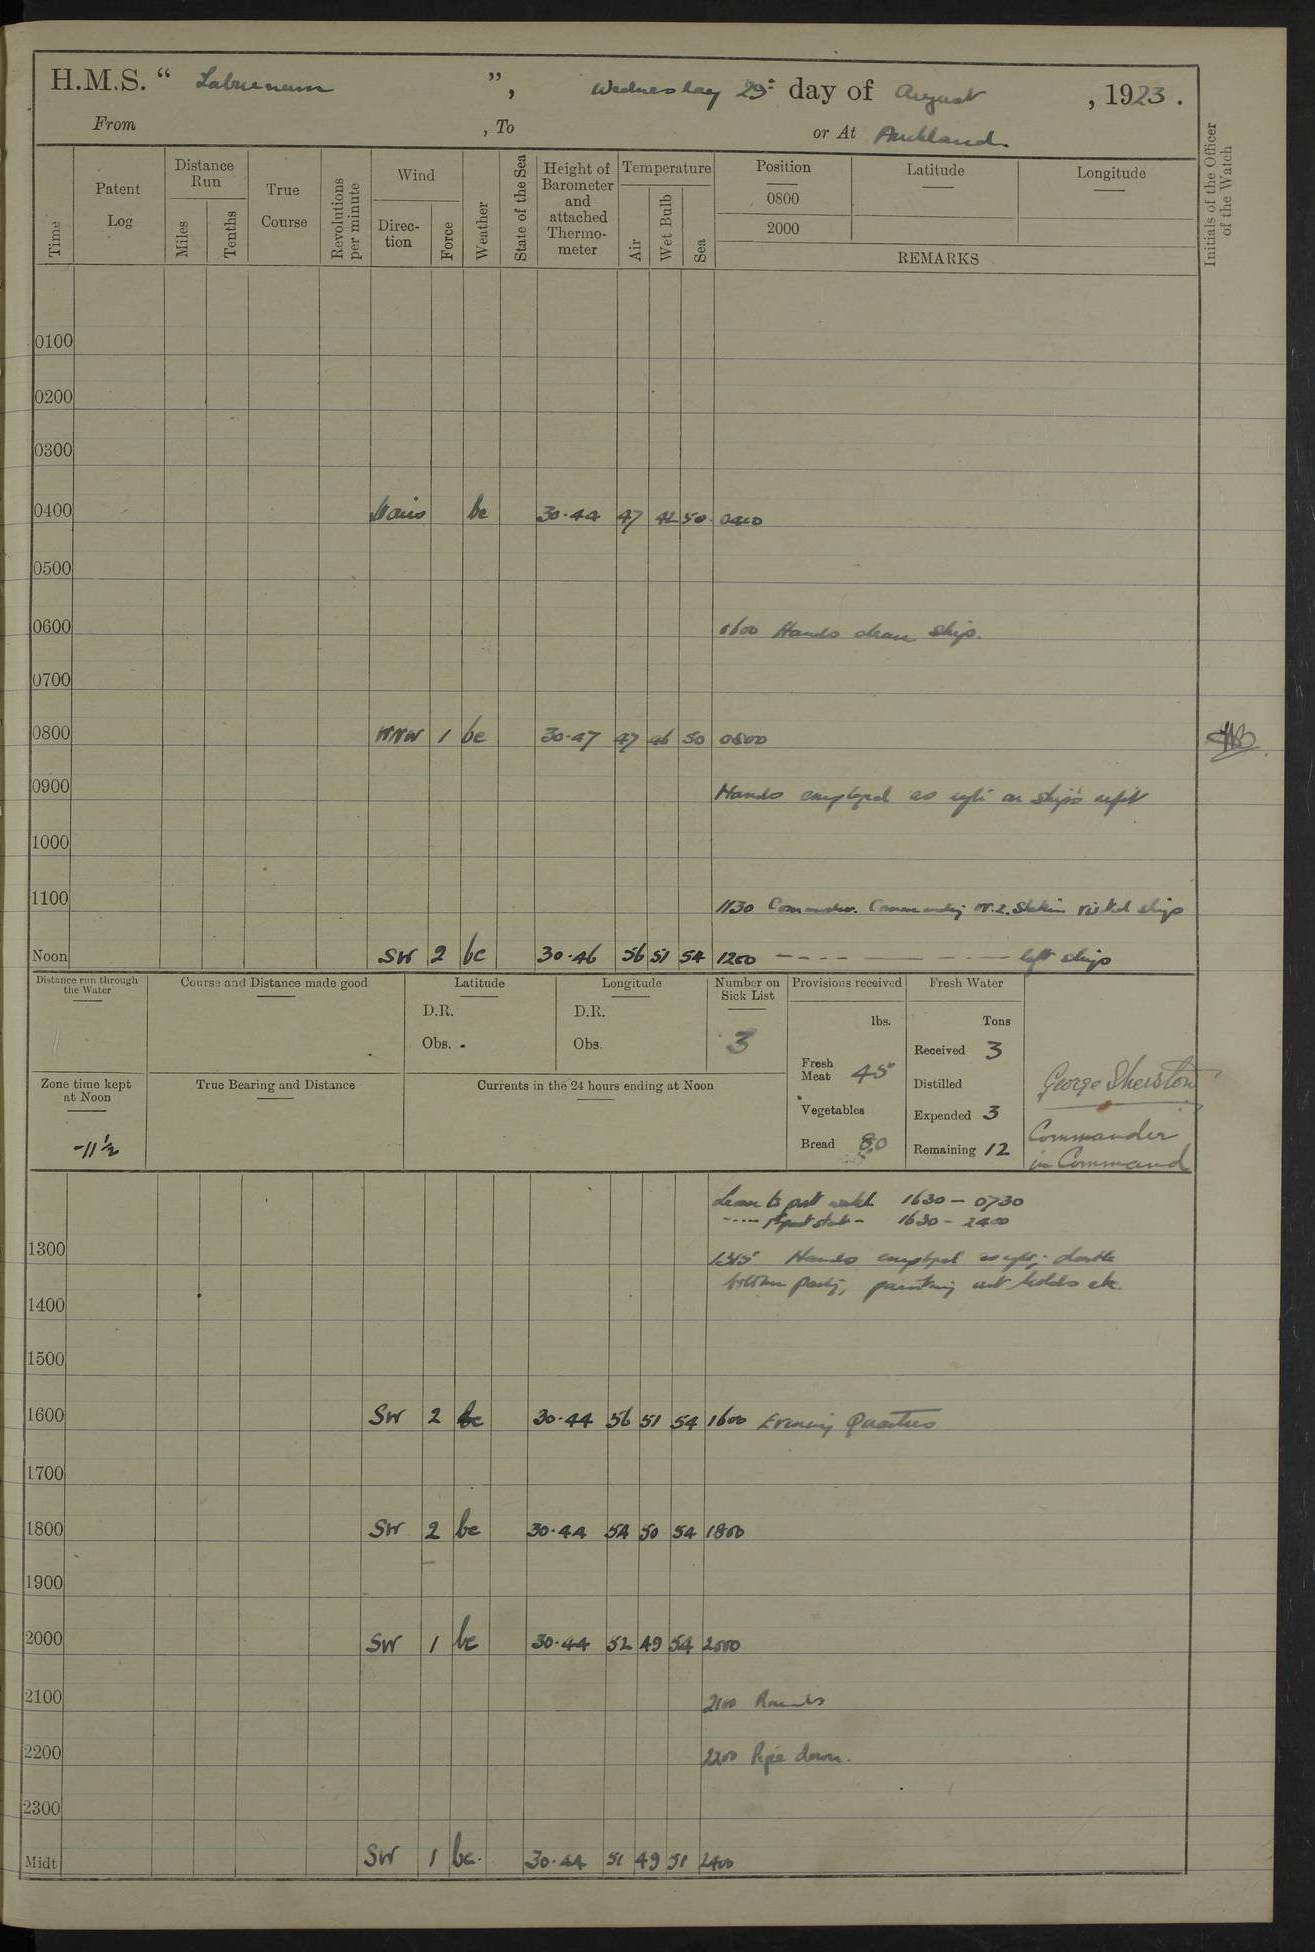 H.M.S. “ Laburnum ”, Wednesday 29th day of August , 1923.
From , To or At Auckland.
Time
Patent Log
Distance Run
Miles
Tenths
True Course
Revolutions per minute
Wind
Direction
Force
Weather
State of the Sea
Height of Barometer and attached Thermometer
Temperature
Air
Wet Bulb
Sea
Position
0800
2000
Latitude
Longitude
REMARKS
Initials of the Officer of the Watch
0100
0200
0300
0400 Vars bc 30.44 47 42 50 0400
0500
0600 0600 Hands clean ship.
0700
0800 WNW 1 bc 30.47 47 46 50 0800
0900 Hands employed as reqte on ship's refit
1000
1100 1130 Commodore Commanding N.Z. Station visited ship
Noon SW 2 bc 30.46 56 51 54 1200 - - - - — — - - — left ship
Distance run through the Water
Course and Distance made good
Latitude
D.R.
Obs.
Longitude
D.R.
Obs.
Number on Sick List
3
Provisions received
lbs.
Fresh Meat 45
Vegetables
Bread 80
Fresh Water
Tons
Received 3
Distilled
Expended 3
Remaining 12
George Sherston
Commander
in Command
Zone time kept at Noon
-11½
True Bearing and Distance
Currents in the 24 hours ending at Noon
Leave to port watch 1630 - 0730
1630 - 2400
1300 1315 Hands employed double
bottom party, painting out holds etc.
1400
1500
1600 SW 2 bc 30.44 56 51 54 1600 Evening Quarters
1700
1800 SW 2 bc 30.44 54 50 54 1800
1900
2000 SW 1 bc 30.44 52 49 54 2000
2100 2100 Rounds
2200 2200 Pipe down.
2300
Midt SW 1 bc. 30.44 51 49 51 2400